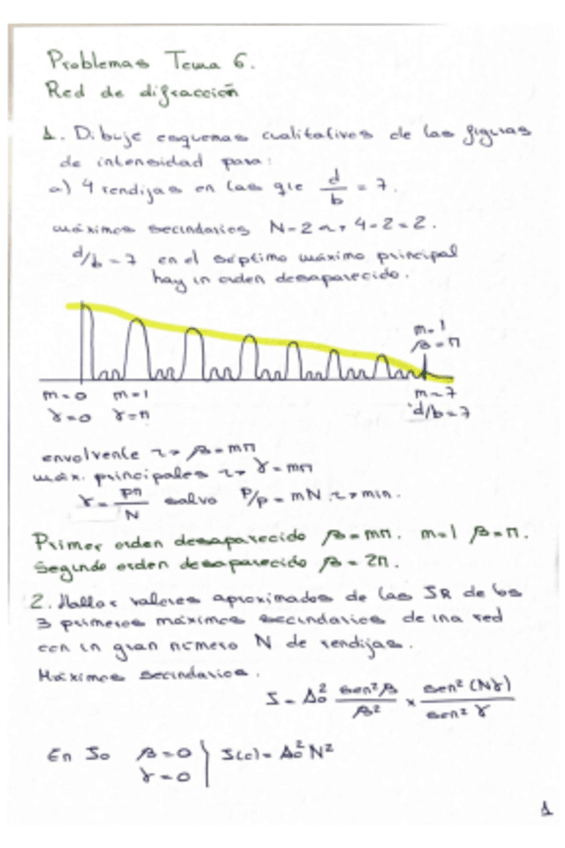 Problemas Tema 6.
Red de difracción
1. Dibuje esquemas cualitativos de las figuras
de intensidad para:
a) 4 rendijas en las que d/b = 7.
máximos secundarios N-2 ⇝ 4-2=2.
d/b = 7 en el séptimo máximo principal
hay un orden desaparecido.
m=1
β=π
m=0 m=1 m=7
γ=0 γ=π d/b=7
envolvente ⇝ β=mπ
máx. principales ⇝ γ=mπ
γ = pπ/N salvo P/p = mN ⇝ min.
Primer orden desaparecido β=mπ. m=1 β=π.
Segundo orden desaparecido β=2π.
2. Hallar valores aproximados de las IR de los
3 primeros máximos secundarios de una red
con un gran número N de rendijas.
Máximos secundarios.
I = A₀² sen²β/β² × sen²(Nγ)/sen²γ
En I₀ β=0 | I(0) = A₀²N²
γ=0
1